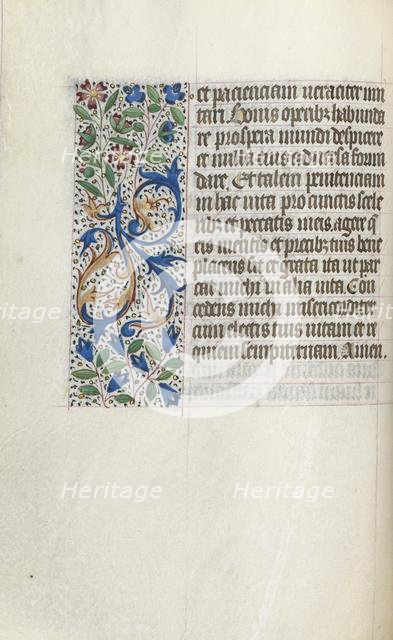 et pacienciam veraciter imi
tari. Bonis operibz habunda
re prospera mundi despicere
et
dare. Et talem penitenciam
in hac vita pro cunctis scele
ribz et peccatis meis agere q
eis meritis et precibz tuis bene
placens sic et grata ita ut par
cat michi in alia vita Con
cedens michi misericorditer
cum electis suis vitam et re
quiem sempiternam. Amen.
Heritage Heritage Heritage
Heritage Heritage